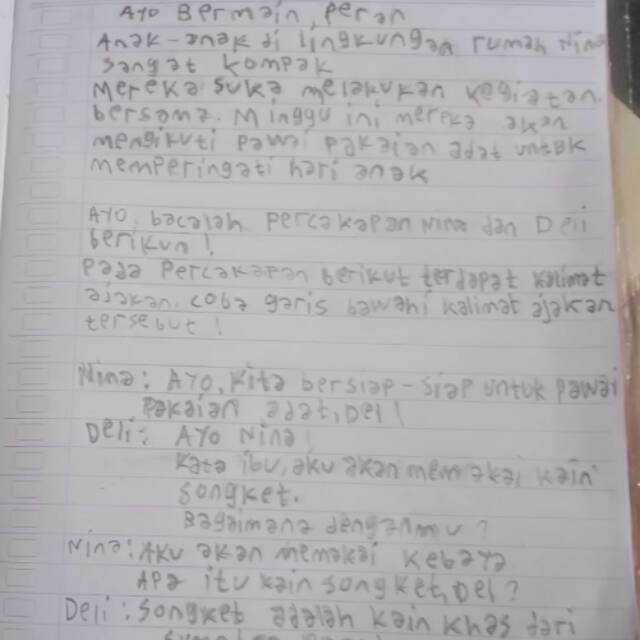 Ayo Bermain peran
Anak-anak di lingkungan rumah Nina
sangat kompak
Mereka suka melakukan kegiatan
bersama. Minggu ini mereka akan
mengikuti pawai pakaian adat untuk
memperingati hari anak
Ayo, bacalah percakapan Nina dan Deli
berikun!
Pada percakapan berikut terdapat kalimat
ajakan. coba garis bawahi kalimat ajakan
tersebut!
Nina: Ayo, kita bersiap-siap untuk pawai
pakaian adat, Del!
Deli: Ayo Nina!
Kata ibu, aku akan memakai kain
songket.
Bagaimana denganmu?
Nina: Aku akan memakai kebaya
Apa itu kain songket, Del?
Deli: Songket adalah kain khas dari